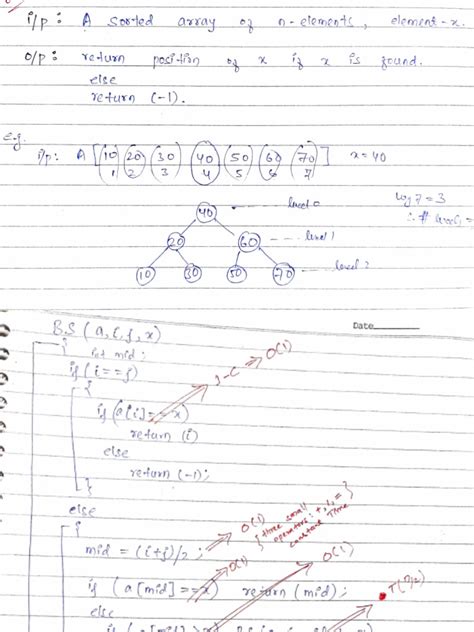 i/p : A sorted array of n-elements, element-x.
o/p : return position of x if x is found.
else
return (-1).
e.g.
i/p: A [ 10 20 30 40 50 60 70 ] x = 40
1 2 3 4 5 6 7
log 7 = 3
∴ # level =
40 level 0
20 60 level 1
10 30 50 70 level 2
Date
B.S ( a, i, j, x )
{
int mid ;
if ( i == j )
{
if (a[i] == x)
return (i)
else
return (-1);
}
O(1)
else
{
mid = (i+j)/2 ; O(1) { three small operators : +, /, = constant Time }
if ( a[mid] == x) return (mid) ;
O(1) O(1)
else
T(n/2)